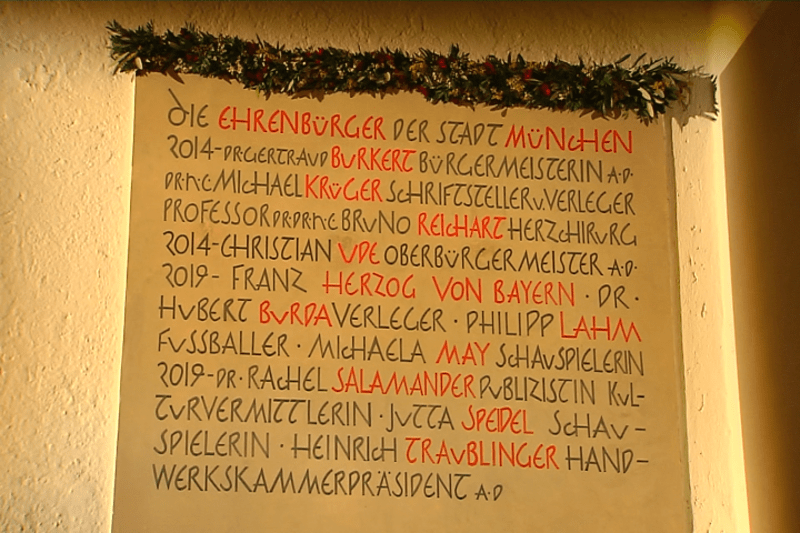 DIE EHRENBÜRGER DER STADT MÜNCHEN
2014-DR·GERTRAUD BURKERT BÜRGERMEISTERIN A·D·
DR·H·C MICHAEL KRÜGER SCHRIFTSTELLER U. VERLEGER
PROFESSOR DR·DR·H·C BRUNO REICHART HERZCHIRURG
2014-CHRISTIAN UDE OBERBÜRGERMEISTER A·D·
2019- FRANZ HERZOG VON BAYERN · DR·
HUBERT BURDA VERLEGER · PHILIPP LAHM
FUSSBALLER · MICHAELA MAY SCHAUSPIELERIN
2019-DR· RACHEL SALAMANDER PUBLIZISTIN KUL-
TURVERMITTLERIN · JUTTA SPEIDEL SCHAU-
SPIELERIN · HEINRICH TRAUBLINGER HAND-
WERKSKAMMERPRÄSIDENT A·D